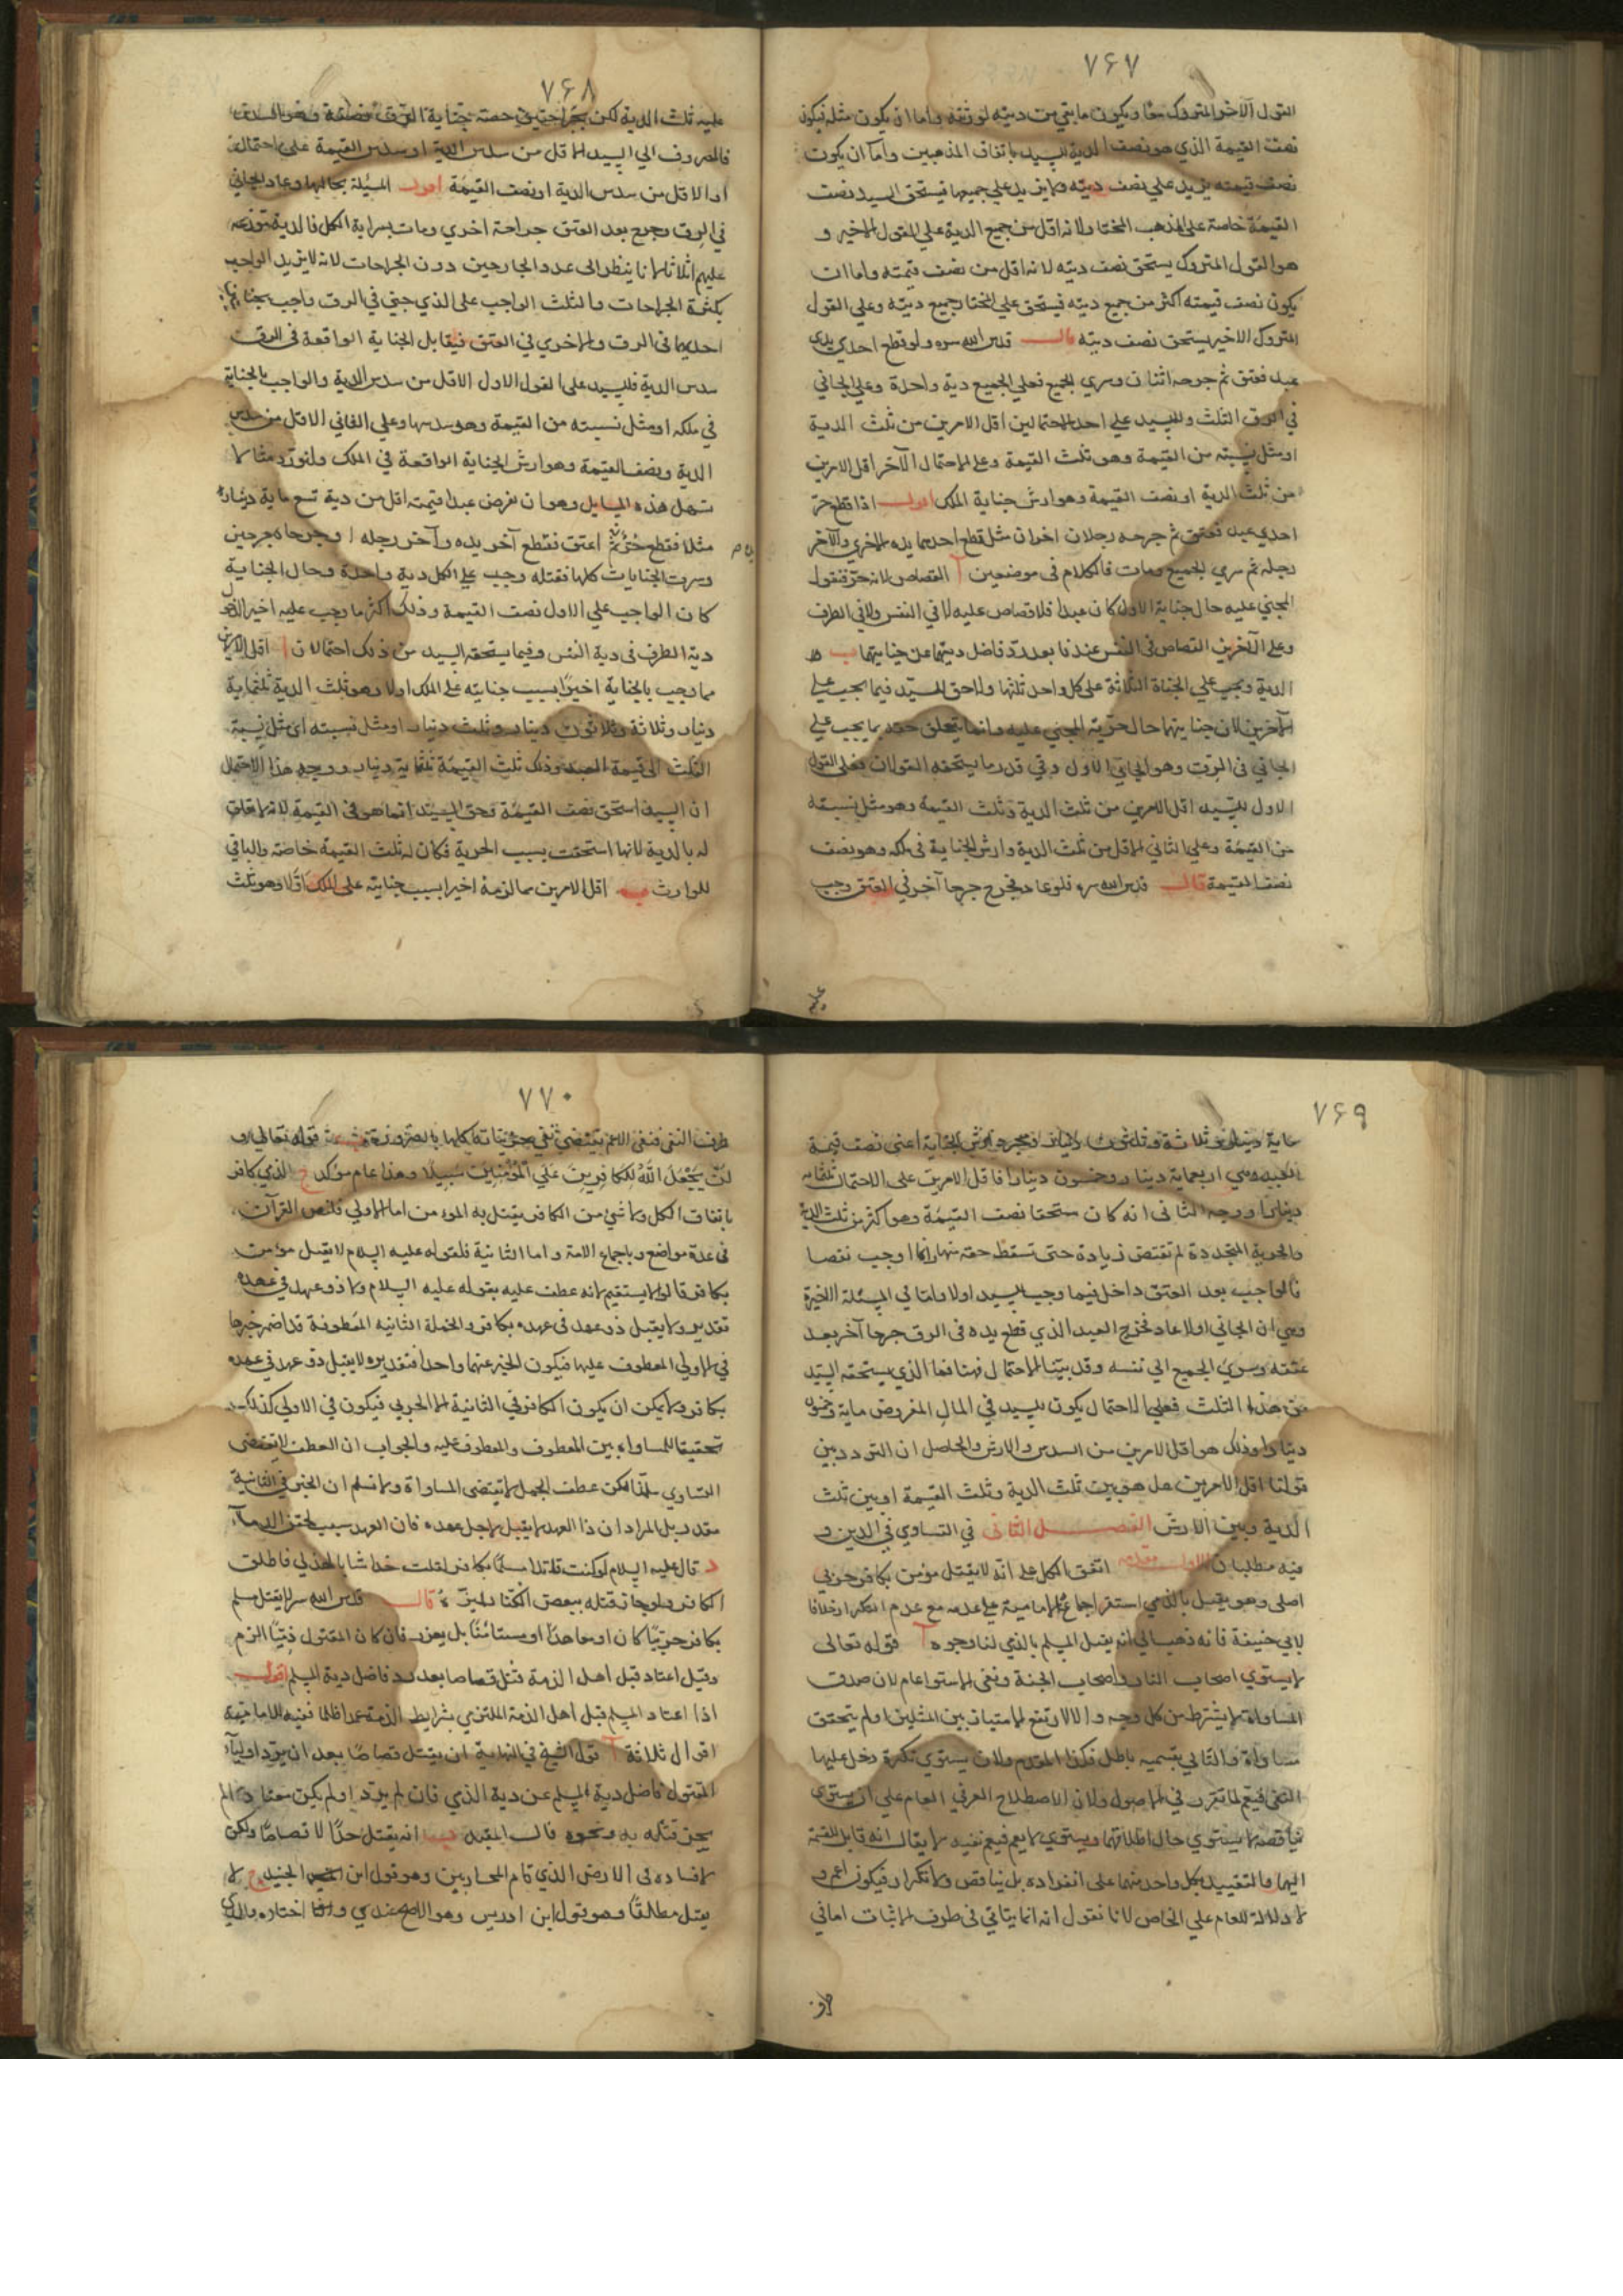 ٧۶٧
القول الآخر المتروك معًا ويكون ما بقي من ديته لورثته واما ان يكون مثله فيكون
نصف القيمة الذي هو نصف الدية للسيد باتفاق المذهبين واما ان يكون
نصف قيمته يزيد علي نصف ديته ولا يزيد علي جميعها فيستحق السيد نصف
القيمة خاصة علي المذهب المختار لانه اقل من جميع الدية علي القول الاخير و
هو القول المتروك يستحق نصف ديته لانه اقل من نصف قيمته واما ان
يكون نصف قيمته اكثر من جميع ديته فيستحق علي المختار جميع ديته وعلي القول
المتروك الاخير يستحق نصف ديته قال قدس الله سره ولو قطع احدي يدي
عبد فعتق ثم جرحه اثنان وسري الجميع فعلي الجميع دية واحدة وعلي الجاني
في الرق الثلث وللسيد علي احد الاحتمالين اقل الامرين من ثلث الدية
او مثل نسبته من القيمة وهو ثلث القيمة وعلي الاحتمال الآخر اقل الامرين
من ثلث الدية او نصف القيمة وهو ارش جناية الملك اقول اذا قطع حرّ
احدي عبد فعتق ثم جرحه رجلان اخران مثل قطع احدهما يده الاخري والآخر
رجله ثم سري الجميع ومات فالكلام في موضعين آ القصاص لانه حرّ فنقول
المجني عليه حال جناية الاول كان عبدا فلا قصاص عليه لا في النفس ولا في الطرف
وعلي الآخرين القصاص في النفس عندنا بعد ردّ فاضل ديتهما عن جنايتهما ب
الدية ويجب علي الجناة الثلاثة علي كل واحد ثلثها ولا حق للسيّد فيما يجب علي
الآخرين لان جنايتهما حال حرّية المجني عليه وانما يتعلق حقه بما يجب علي
الجاني في الرق وهو الجاني الاول وفي قدر ما يستحقه القولان فعلي القول
الاول للسيد اقل الامرين من ثلث الدية وثلث القيمة وهو مثل نسبته
من القيمة وعلي الثاني الاقل من ثلث الدية وارش الجناية في ملكه وهو نصف
نصف القيمة قال قدس الله سره فلو عاد فجرح جرحا آخر في العتق وجب
عليه
٧۶٨
عليه ثلث الدية لكن بجراحتين حصة جناية الرق نصفه وهو السدس
فالمصروف الي السيد الاقل من سدس الدية او سدس القيمة علي احتمال
او الاقل من سدس الدية او نصف القيمة اقول المسئلة بحالها وعاد الجاني
في الرق وجرح بعد العتق جراحة اخري ومات بسراية الكل فالدية موزعة
عليهم اثلاثا لانا ننظر الي عدد الجارحين دون الجراحات لانه لا يزيد الواجب
بكثرة الجراحات والثلث الواجب علي الذي جني في الرق واجب بجنايتين
احديهما في الرق والاخري في العتق فيقابل الجناية الواقعة في الرق
سدس الدية فللسيد علي القول الاول الاقل من سدس الدية والواجب بالجناية
في ملكه او مثل نسبته من القيمة وهو سدسها وعلي الثاني الاقل من سدس
الدية ونصف القيمة وهو ارش الجناية الواقعة في الملك ولنورد مثالا
تسهل هذه المسايل وهو ان نفرض عبدا قيمته اقل من دية تسع ماية دينار
مثلا فقطع حرّ ثم اعتق فقطع آخر يده وآخر رجله او جرحاه جرحين
وسرت الجنايات كلها فقتله وجب علي الكل دية واحدة وحال الجناية
كان الواجب علي الاول نصف القيمة وذلك اكثر ما وجب عليه اخيرا لدخول
دية الطرف في دية النفس وفيما يستحقه السيد من ذلك احتمالان آ اقل الامرين
مما وجب بالجناية اخيرًا بسبب جنايته علي الملك اولا وهو ثلث الدية ثلثماية
دينار وثلاثة وثلاثون دينار وثلث دينار او مثل نسبته اي مثل نسبة
الثلث الي قيمة العبد وذلك ثلث القيمة ثلثماية دينار ووجه هذا الاحتمال
ان السيد استحق نصف القيمة فحق السيد انما هو في القيمة لانه لا تعلق
له بالدية لانها استحقت بسبب الحرية فكان له ثلث القيمة خاصة والباقي
للوارث ب اقل الامرين مما لزمه اخيرا بسبب جنايته علي الملك اوّلا وهو ثلث
٧۶٩
ماية دينار وثلاثة وثلاثون دينار ومجرد ارش الجناية اعني نصف قيمة
العبد وهي اربعماية دينار وخمسون دينارا فاقل الامرين علي الاحتمال ثلثماية
دينار ووجه الثاني انه كان مستحقا نصف القيمة وهو اكثر من ثلث الدية
والحرية المتجددة لم تقتض زيادة حتي تسقط حقه منها وانما اوجب نقصا
فالواجب بعد العتق داخل فيما وجب للسيد اولا واما في المسئلة الاخيرة
وهي ان الجاني اولا عاد فجرح العبد الذي قطع يده في الرق جرحا آخر بعد
عتقه وسري الجميع الي نفسه وقد بيّنا الاحتمال فيها فما الذي يستحقه السيّد
من هذا الثلث فعلي الاحتمال يكون للسيد في المال المفروض ماية وخمسون
دينارا وذلك هو اقل الامرين من السدس والارش والحاصل ان التردد بين
قولنا اقل الامرين هل هو بين ثلث الدية وثلث القيمة او بين ثلث
الدية وبين الارش الفصل الثاني في التساوي في الدين و
فيه مطلبان الاول مقدمة اتفق الكل علي انّه لا يقتل مؤمن بكافر حربي
اصلي وهو يقتل بالذمي استقر اجماع الامامية علي عدمه مع عدم التكرار خلافا
لابي حنيفة فانه ذهب الي انه يقتل المسلم بالذي لنا وجوه آ قوله تعالى
لا يستوي اصحاب النار واصحاب الجنة ونفي الاستوا عام لان صدق
المساواة لا يشترط من كل وجه والا لارتفع الامتياز بين المثلين او لم يتحقق
مساواة والتالي بقسميه باطل فكذا المقدم ولان يستوي نكرة دخل عليها
النفي فيعم لما تقرر في الاصول ولان الاصطلاح العرفي العام علي ان يستوي
يناقضه لا يستوي حال اطلاقهما ويستوي لا يعم فيعم نفيه لا يقال انه قابل للقسمة
اليهما والتقييد بكل واحد منهما علي انفراده بل يناقض ولا تكرار فيكون اعم و
لا دلالة للعام علي الخاص لانا نقول انه انما يتاتي في طرف الاثبات اما في
طرف
٧٧٠
طرف النفي فنفي الاعم يقتضي نفي جزئياته كلها بالضرورة ب قوله تعالي و
لَنْ يَجْعَلَ اللّهُ لِلكَافِرِينَ عَلَي الْمُؤْمِنِينَ سَبِيلًا وهذا عام مؤكد ج الذي كافر
باتفاق الكل ولا شي من الكافر يقتل به المؤمن اما الاولي فلنص القرآن
في عدة مواضع وباجماع الامة واما الثانية فلقوله عليه السلام لا يقتل مؤمن
بكافر قالوا لا يستقيم لانه عطف عليه بقوله عليه السلام ولا ذو عهد في عهده
تقديره ولا يقتل ذو عهد في عهده بكافر والجملة الثانية المعطوفة قد اضمر خبرها
في الاولي المعطوف عليها فيكون الخبر عنهما واحدا فتقديره لا يقتل ذو عهد في عهده
بكافر ولا يمكن ان يكون الكافر في الثانية الا الحربي فيكون في الاولي كذلك
تحقيقا للمساواه بين المعطوف والمعطوف عليه والجواب ان العطف لا يقتضي
التساوي سلّمنا لكن عطف الجمل لا يقتضي المساواة ولا نسلم ان الخبر في الثانية
مقدر بل المراد ان ذا العهد لا يقتل لاجل عهده فان العهد سبب لحقن الدماء
د قال عليه السلام لو كنت قاتلا مسلمًا بكافر لقتلت خداشا بالهذلي فاطلق
الكافر ولو جاز قتله ببعض الكفّار لبيّنه قال قدس الله سره لا يقتل مسلم
بكافر حربيّا كان او معاهدًا او مستامنًا بل يعزر فان كان المقتول ذميّا الزم
وقيل اعتاد قتل اهل الذمة قتل قصاصا بعد رد فاضل دية المسلم اقول
اذا اعتاد المسلم قتل اهل الذمة الملتزمي بشرايط الذمة عمدا ظلما ففيه للامامية
اقوال ثلاثة آ قول الشيخ في النهاية ان يقتل قصاصًا بعد ان يردّ اولياء
المقتول فاضل دية المسلم عن دية الذي فان لم يردّ او لم يكن معتادا لم
يجز قتله به ونحوه قال المفيد ب انه يقتل حدًّا لا قصاصًا ولكن
لافساده في الارض الذي قام المحاربين وهو قول ابن الجنيد ج لا
يقتل مطلقًا وهو قول ابن ادريس وهو الاصح عندي وانما اختاره والدي